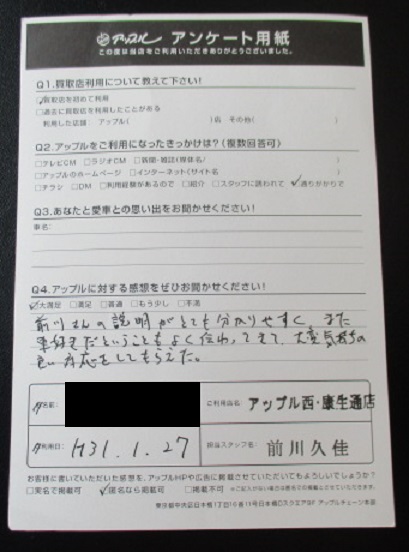 アップル アンケート用紙
この度は当店をご利用いただきありがとうございました。
Q1.買取店利用について教えて下さい!
☑買取店を初めて利用
□過去に買取店を利用したことがある
利用した店舗: アップル( )店 その他( )
Q2.アップルをご利用になったきっかけは?(複数回答可)
□テレビCM □ラジオCM □新聞・雑誌(媒体名 )
□アップルのホームページ □インターネット(サイト名 )
□チラシ □DM □利用経験があるので □紹介 □スタッフに誘われて ☑通りがかりで
Q3.あなたと愛車との思い出をお聞かせください!
車名:
Q4.アップルに対する感想をぜひお聞かせください!
☑大満足 □満足 □普通 □もう少し □不満
前川さんの説明がとても分かりやすく、また
車好きだということもよく伝わってきて、大変気持ちの
良い対応をしてもらえた。
お名前:
ご利用店名: アップル西・康生通店
ご利用日: H31.1.27
担当スタッフ名: 前川久佳
お客様に書いていただいた感想を、アップルHPや広告に掲載させていただいてもよろしいでしょうか?
□実名で掲載可 ☑匿名なら掲載可 □掲載不可